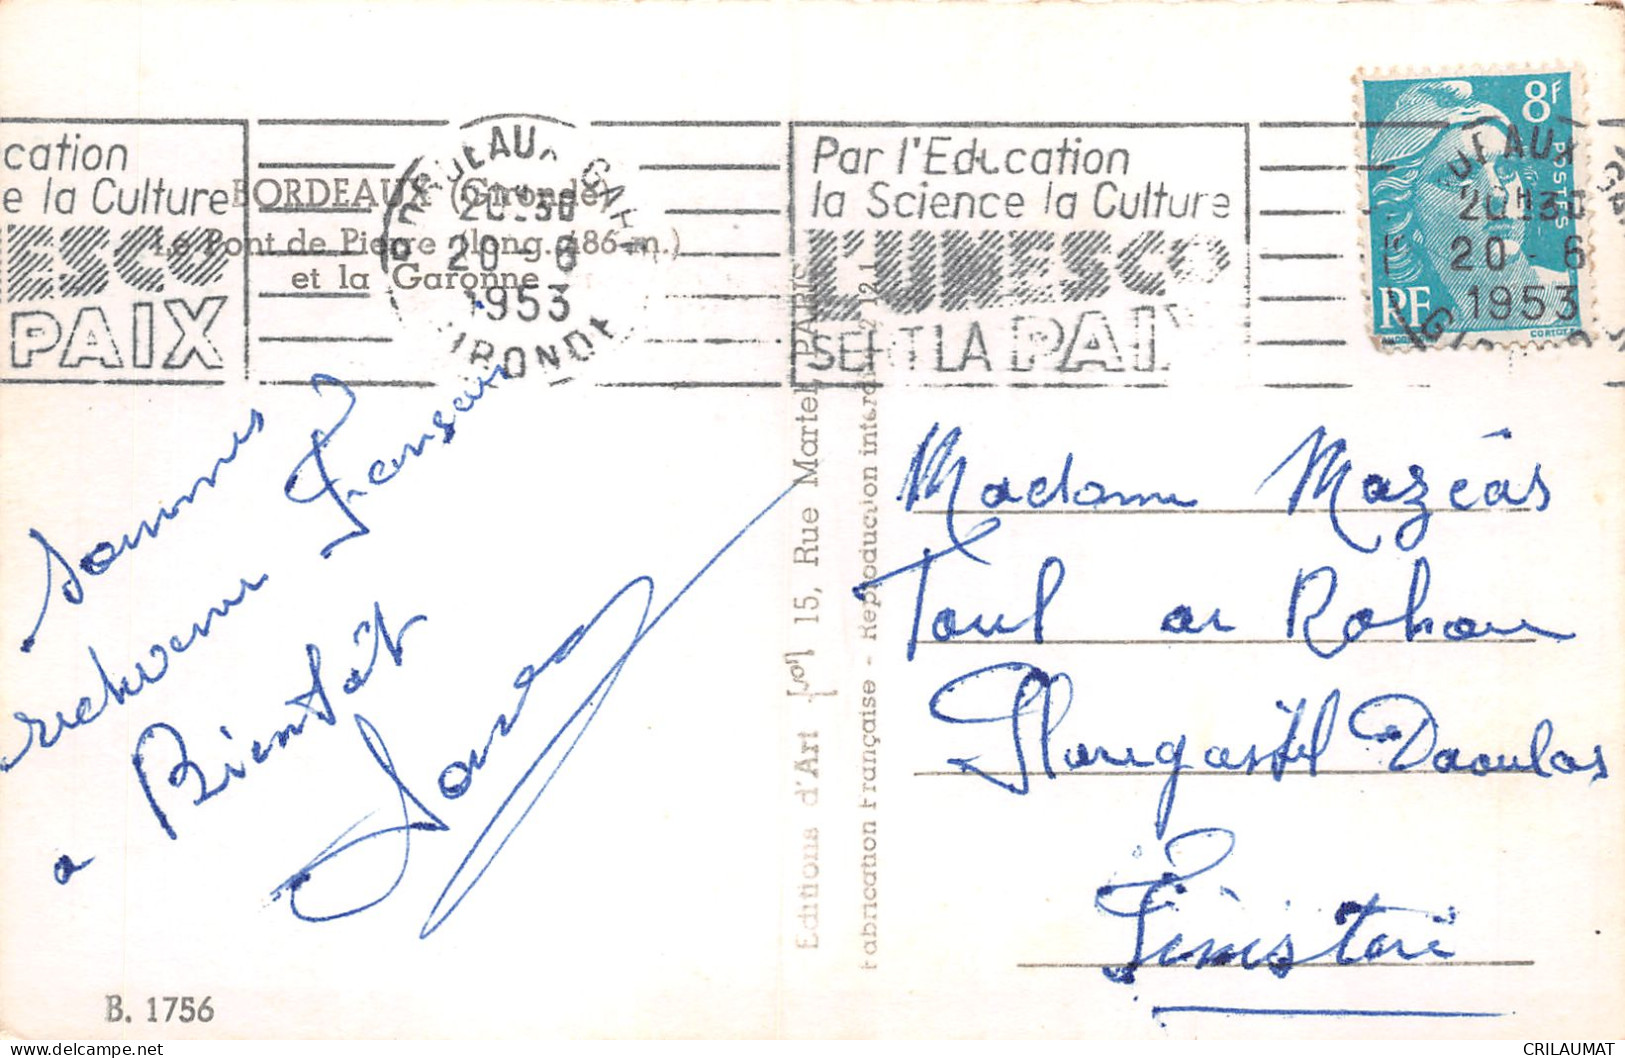 cation
e la Culture
ESCO
PAIX
BORDEAUX (Gironde)
Le Pont de Pierre (long. 486 m.)
et la Garonne
BORDEAUX GARE
20H30
20 - 6
1953
GIRONDE
Par l'Education
la Science la Culture
L'UNESCO
SERT LA PAIX
8F
POSTES
RF
20H30
20 - 6
1953
sommes
a Bientôt
Editions d'Art 15, Rue Martel, PARIS
Fabrication Française - Reproduction interdite
Madame Mazéas
Toul ar Rohou
Plougastel Daoulas
Finistère
B. 1756
CRILAUMAT